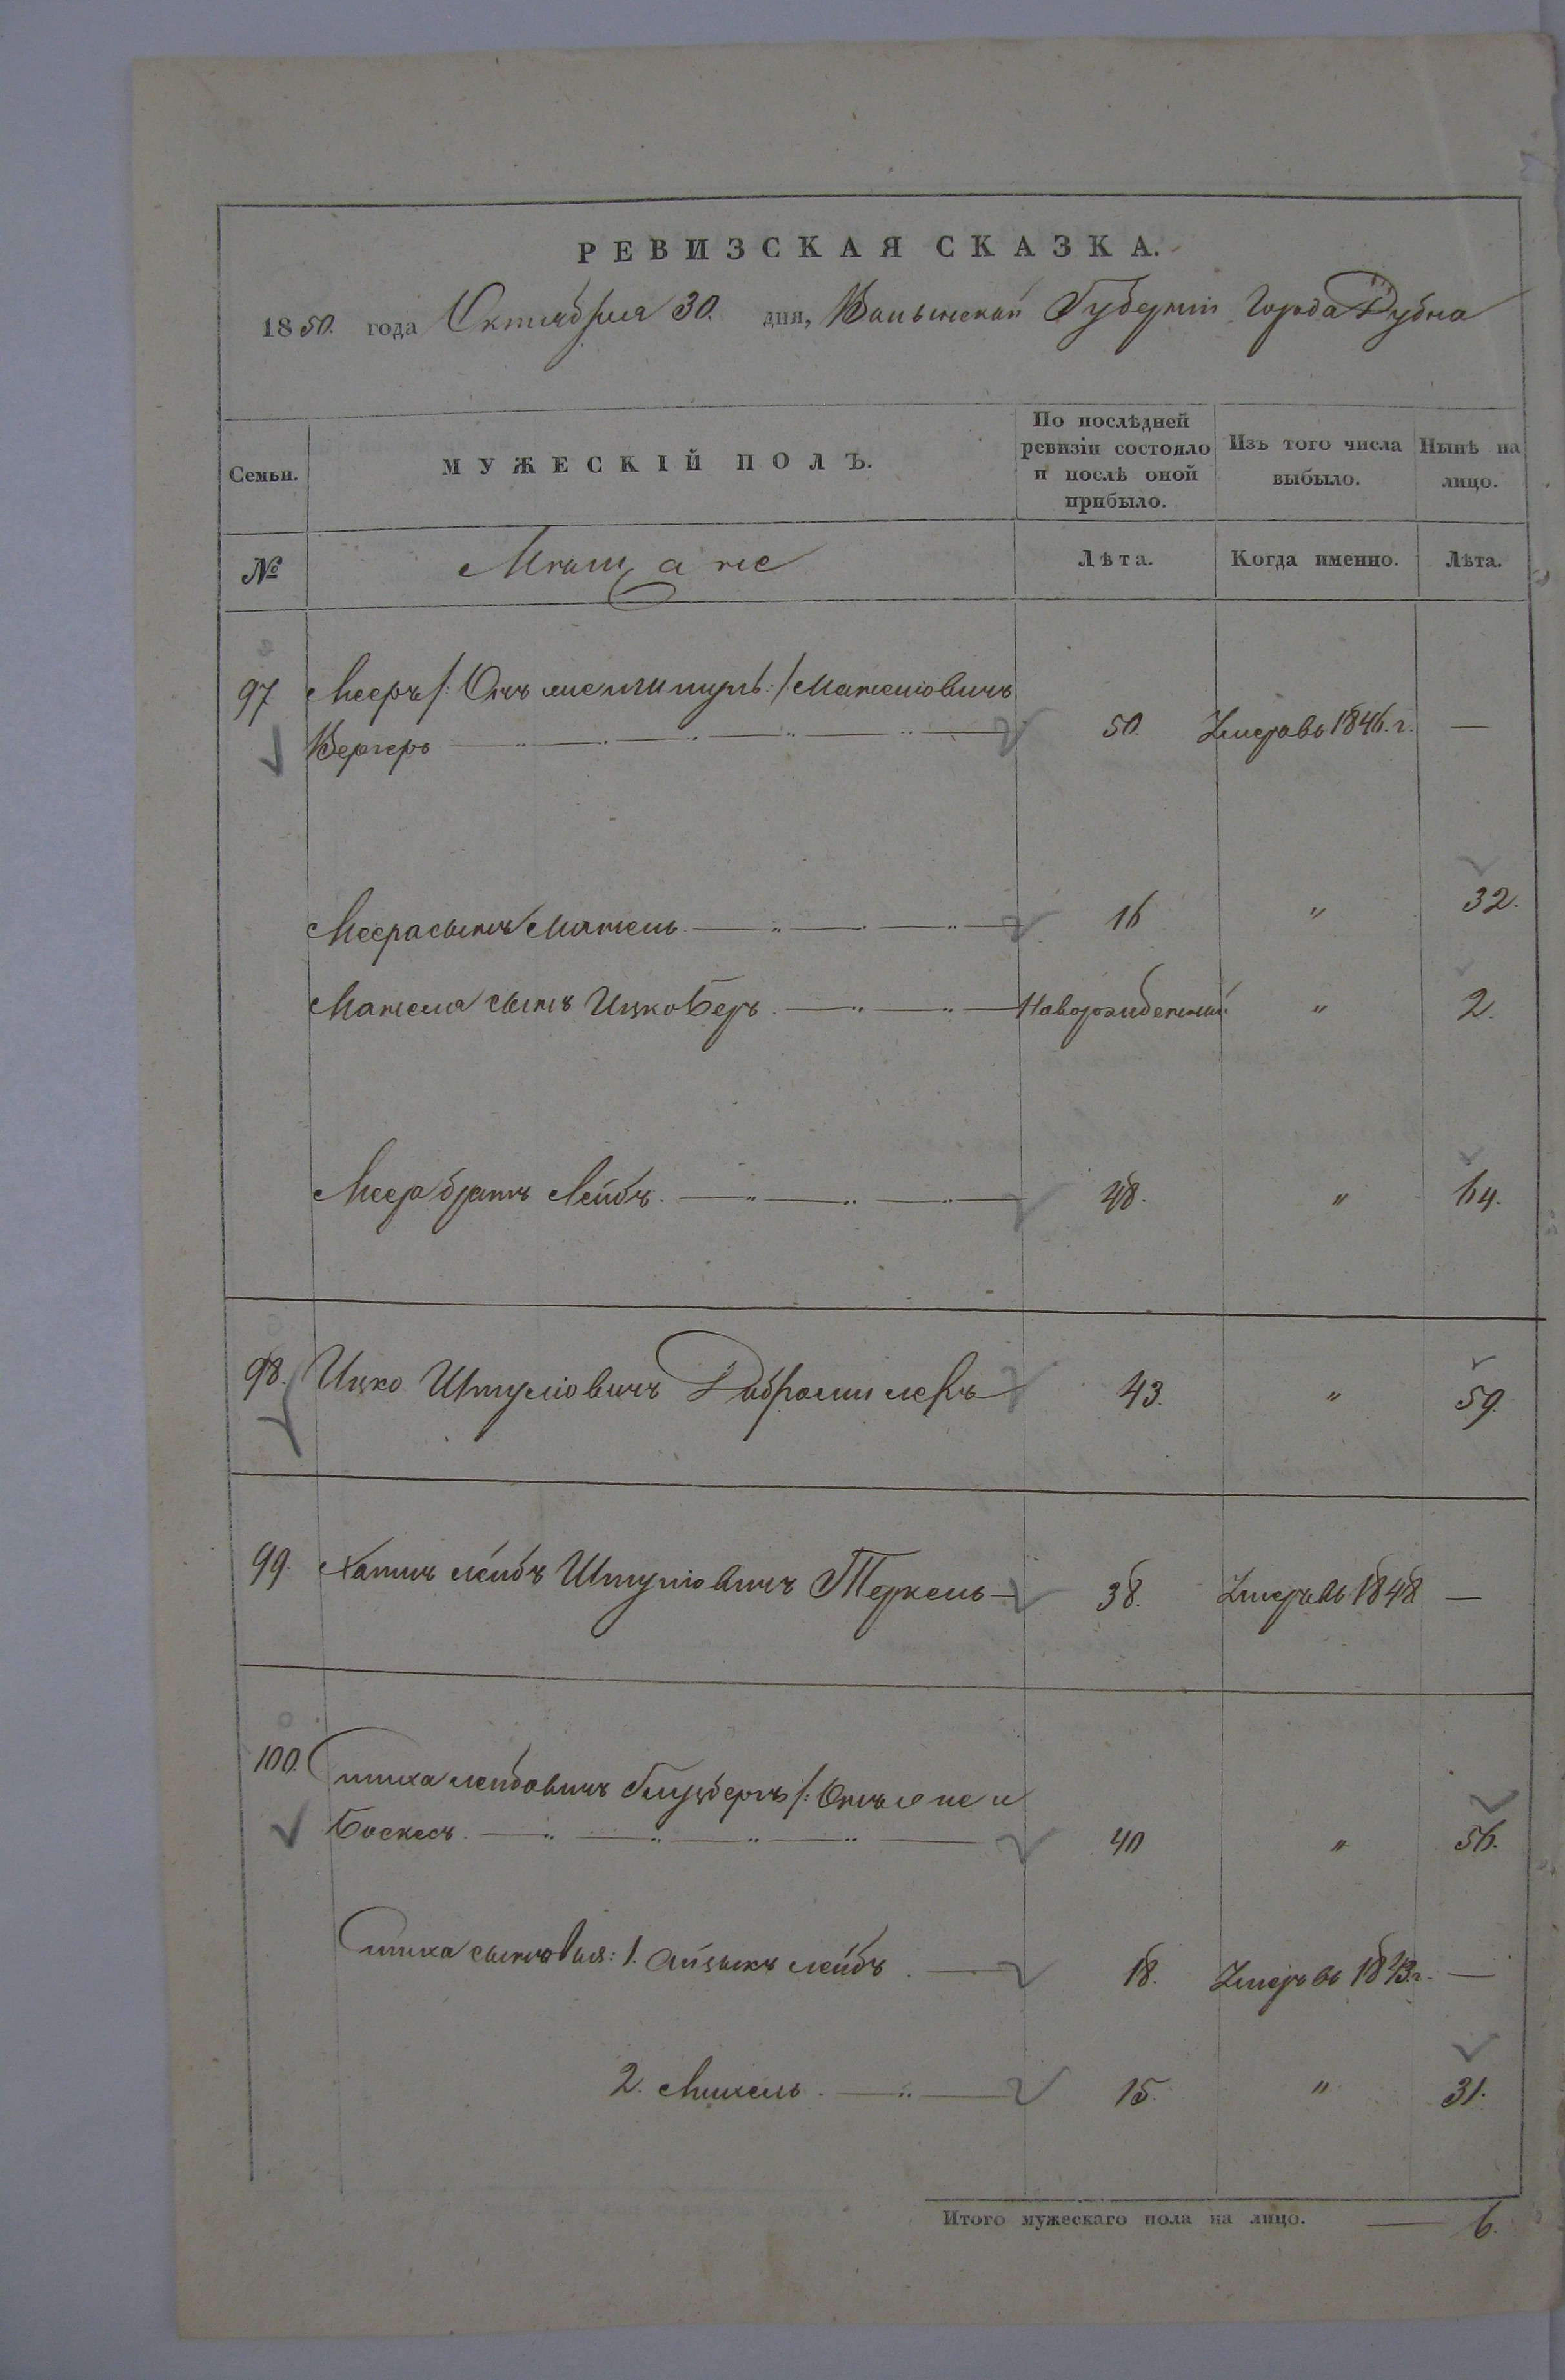 РЕВИЗСКАЯ СКАЗКА.
1850. года Октября 30. дня, Волынской Губернiи Города Дубна
Семьи. МУЖЕСКIЙ ПОЛЪ. По послѣдней ревизiи состояло и послѣ оной прибыло. Изъ того числа выбыло. Нынѣ на лицо.
№ Мѣщане Лѣта. Когда именно. Лѣта.
97 Мееръ /: Онъ же :/ Мателiовичъ
Бергеръ 50. Умеръ въ 1846. г. —
Меера сынъ Матель 16 " 32.
Мателя сынъ Ицко Беръ Новорожденный " 2.
Меера братъ Лейбъ 48. " 64.
98. Ицко Шмулiовичъ 43. " 59.
99. Лейбъ Шмулiовичъ Теркель 38. Умеръ въ 1848 —
100. Симха Лейбовичъ /: Онъ же и
40 " 56.
Симха сыновья: 1. Айзыкъ Лейбъ 18. Умеръ въ 1843 г. —
2. Михель 15. " 31.
Итого мужескаго пола на лицо. — 6.